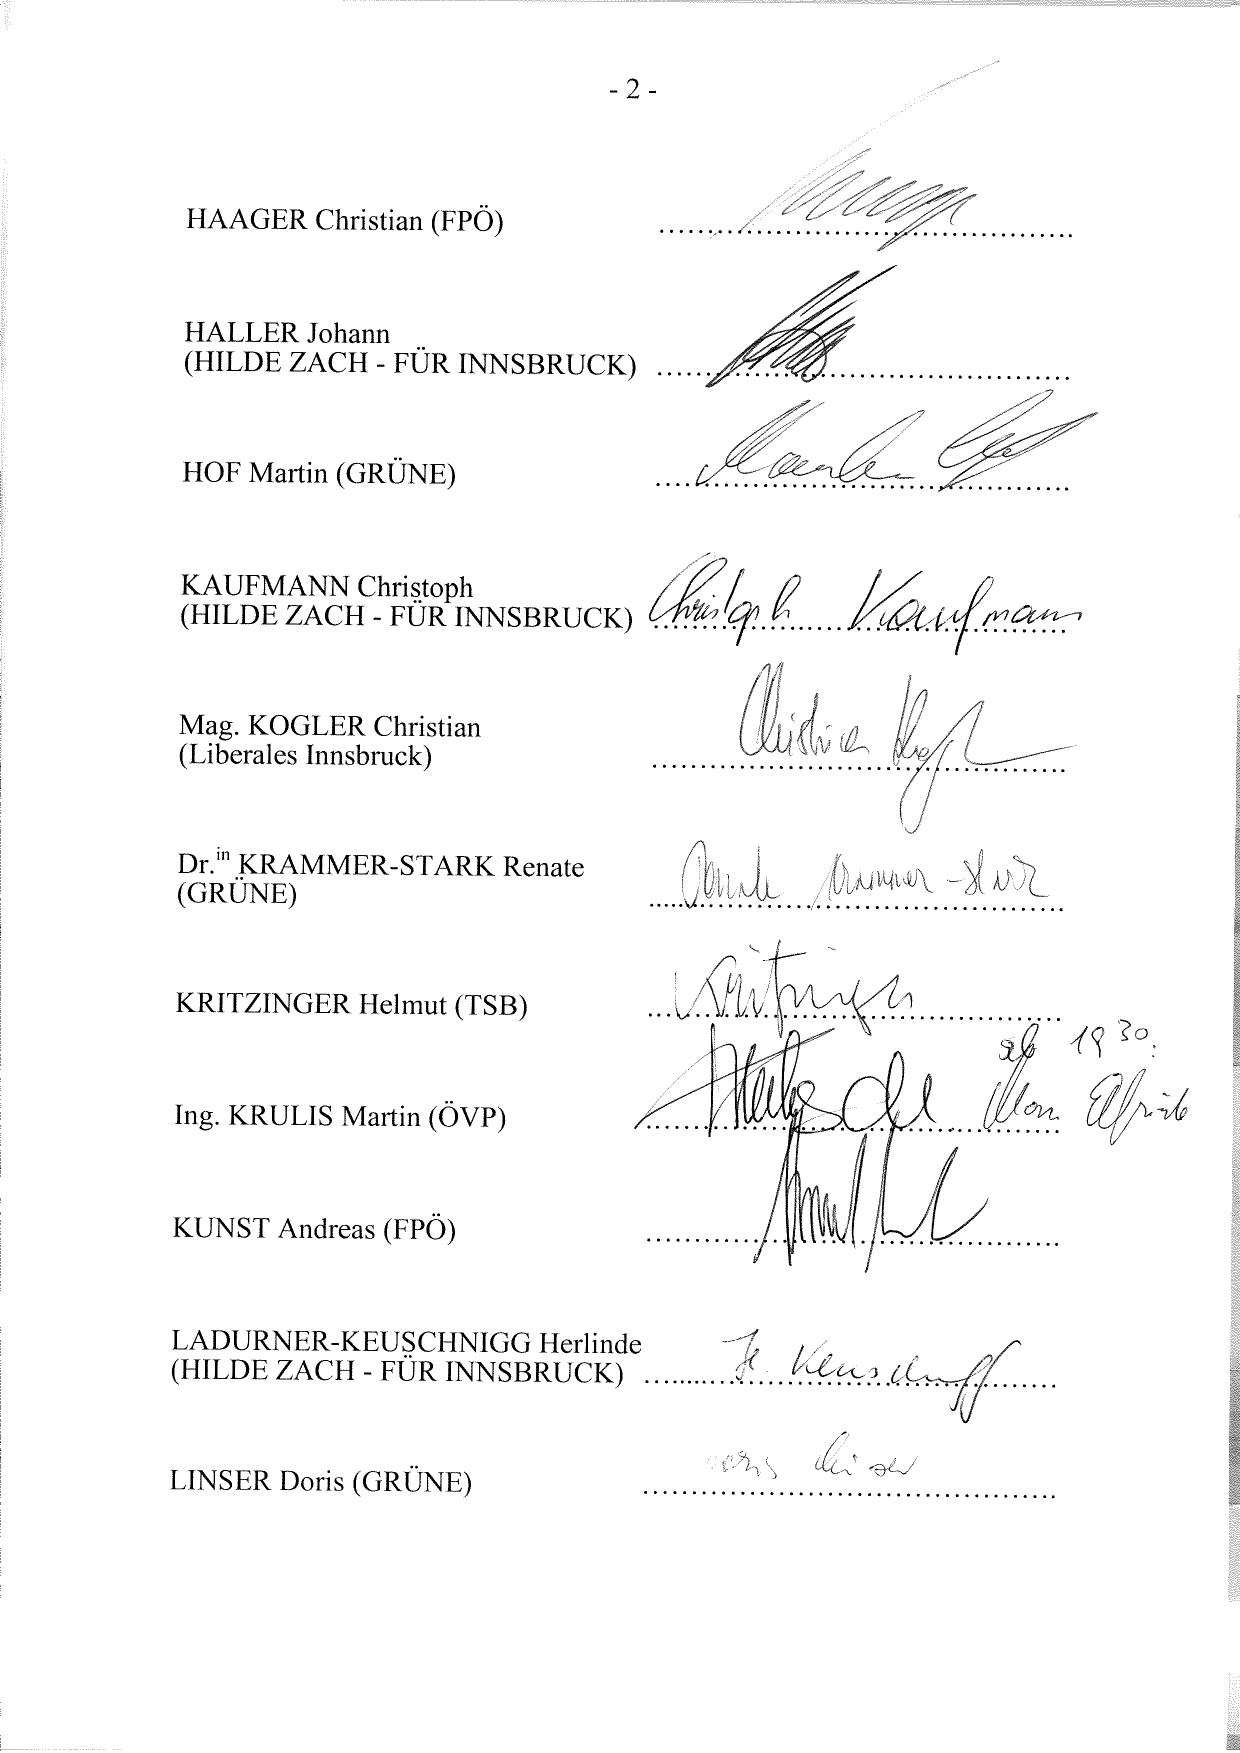 - 2 -
HAAGER Christian (FPÖ)
HALLER Johann
(HILDE ZACH - FÜR INNSBRUCK)
HOF Martin (GRÜNE)
KAUFMANN Christoph
(HILDE ZACH - FÜR INNSBRUCK) Christoph Kaufmann
Mag. KOGLER Christian
(Liberales Innsbruck)
Dr.in KRAMMER-STARK Renate
(GRÜNE)
KRITZINGER Helmut (TSB) Kritzinger
ab 19 30
Ing. KRULIS Martin (ÖVP)
KUNST Andreas (FPÖ)
LADURNER-KEUSCHNIGG Herlinde
(HILDE ZACH - FÜR INNSBRUCK)
LINSER Doris (GRÜNE)